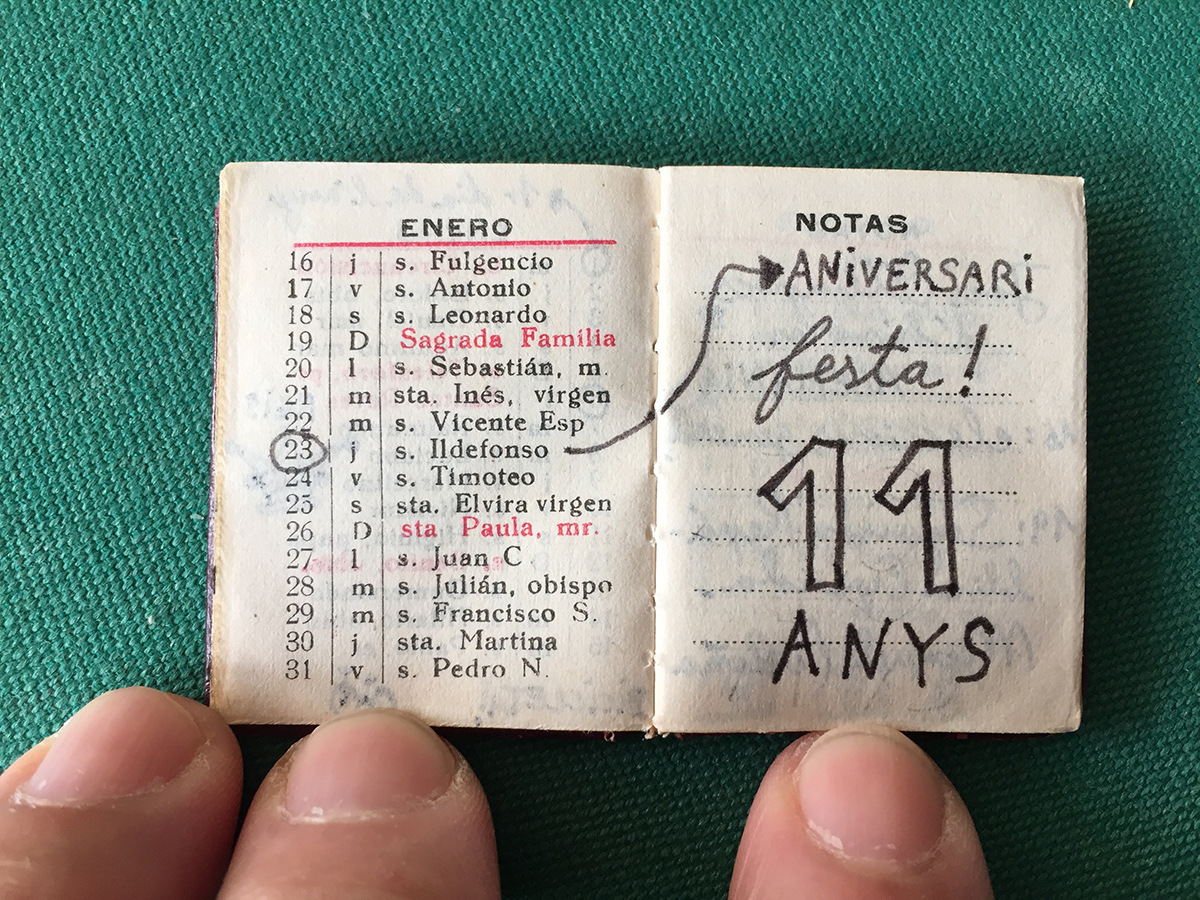 ENERO
16 j s. Fulgencio
17 v s. Antonio
18 s s. Leonardo
19 D Sagrada Familia
20 l s. Sebastián, m.
21 m sta. Inés, virgen
22 m s. Vicente Esp
23 j s. Ildefonso
24 v s. Timoteo
25 s sta. Elvira virgen
26 D sta Paula, mr.
27 l s. Juan C
28 m s. Julián, obispo
29 m s. Francisco S.
30 j sta. Martina
31 v s. Pedro N.
NOTAS
ANiVERSARi
festa!
11
ANYS